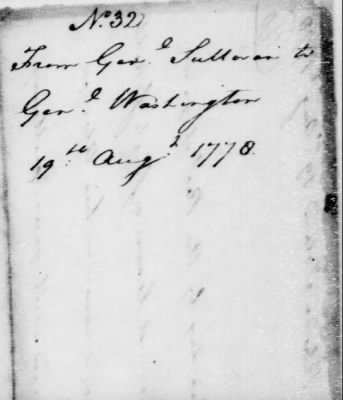 No. 32
From Genl. Sullivan to
Genl. Washington
19th Augt. 1778